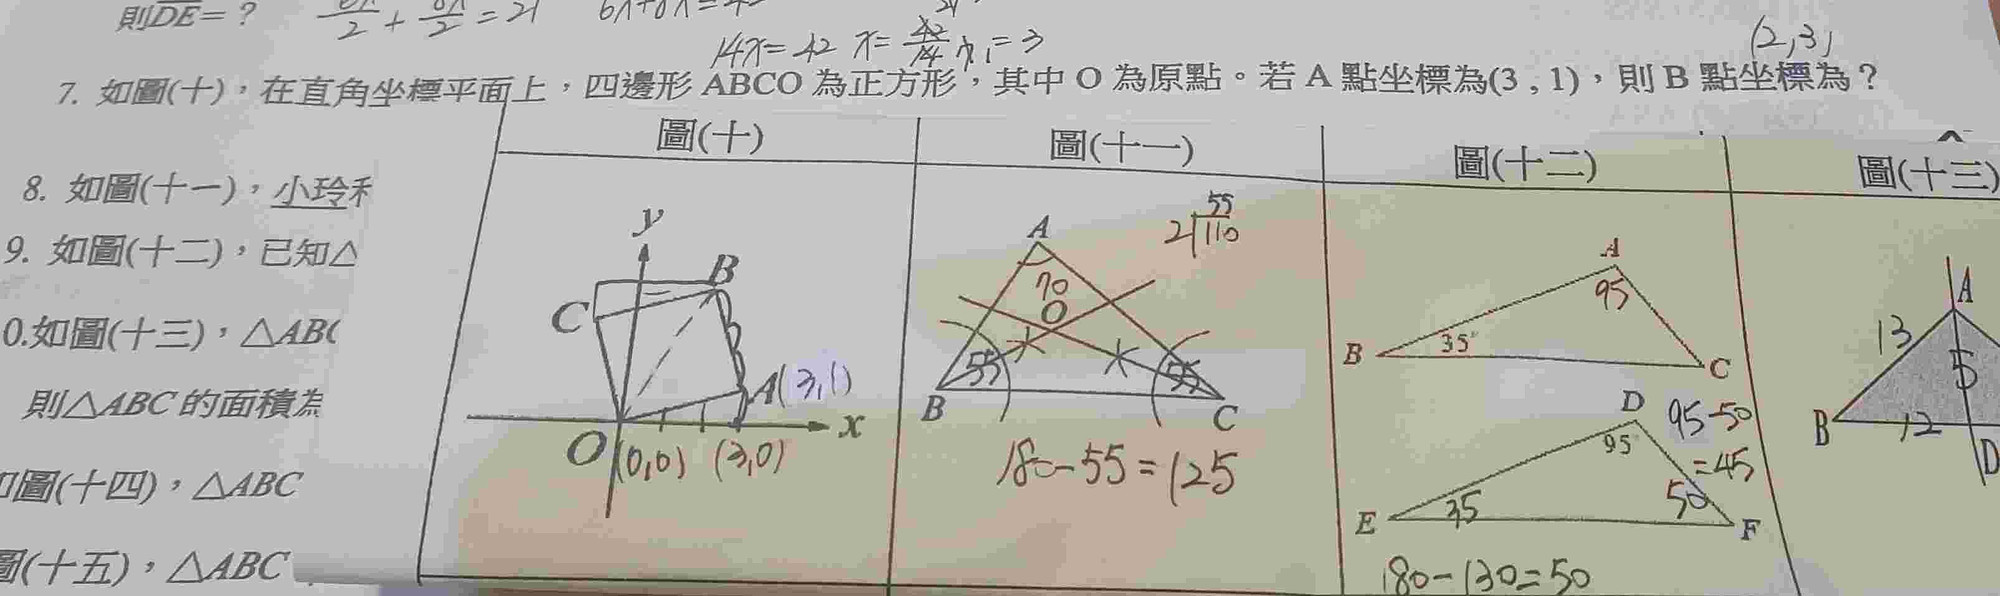 則DE=？
14x=42 x=42/14 x=3
(2,3)
7. 如圖(十)，在直角坐標平面上，四邊形 ABCO 為正方形，其中 O 為原點。若 A 點坐標為(3 , 1)，則 B 點坐標為？
圖(十) 圖(十一) 圖(十二) 圖(十三)
8. 如圖(十一)，小玲
9. 如圖(十二)，已知△
0.如圖(十三)，△ABC
則△ABC 的面積為
圖(十四)，△ABC
圖(十五)，△ABC
y
B
C
A(3,1)
x
O (0,0) (3,0)
55
2 110
A
70
O
55 55
B C
180-55=125
A
95
B 35° C
D 95-50
95° =45
E 35 50 F
180-130=50
A
13
5
B 12
D